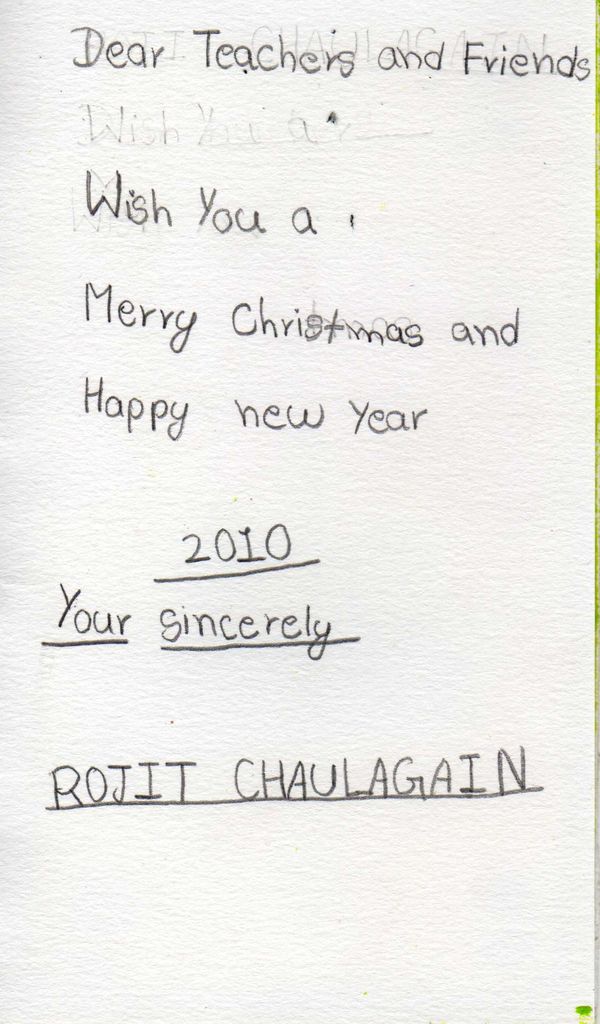 Dear Teachers and Friends
Wish You a
Wish You a
Merry Christmas and
Happy new Year
2010
Your sincerely
ROJIT CHAULAGAIN